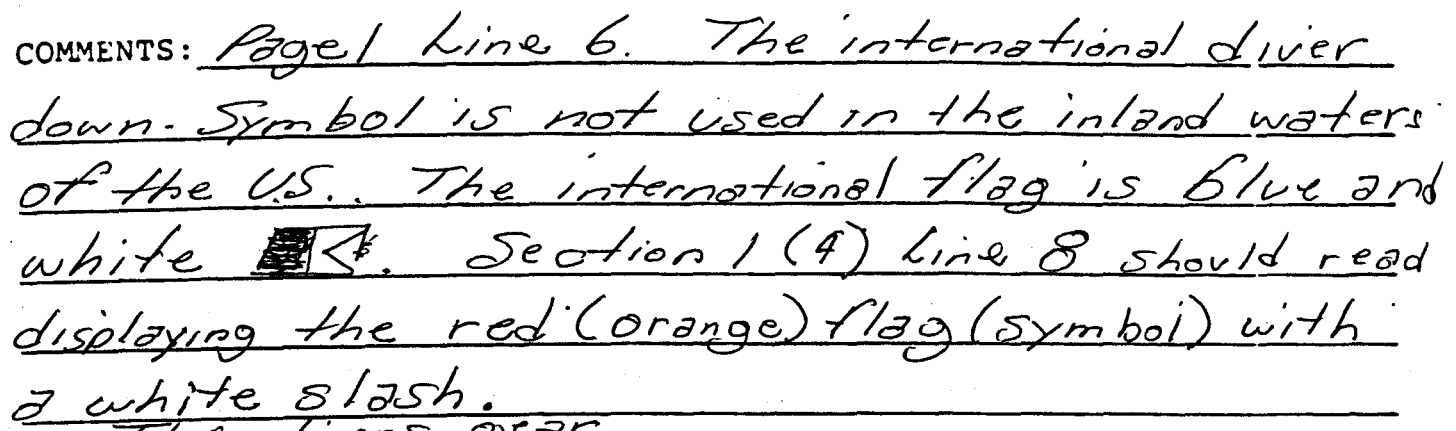 COMMENTS: Page 1 Line 6. The international diver
down. Symbol is not used in the inland waters
of the U.S.. The international flag is blue and
white . Section 1 (4) Line 8 should read
displaying the red (orange) flag (symbol) with
a white slash.